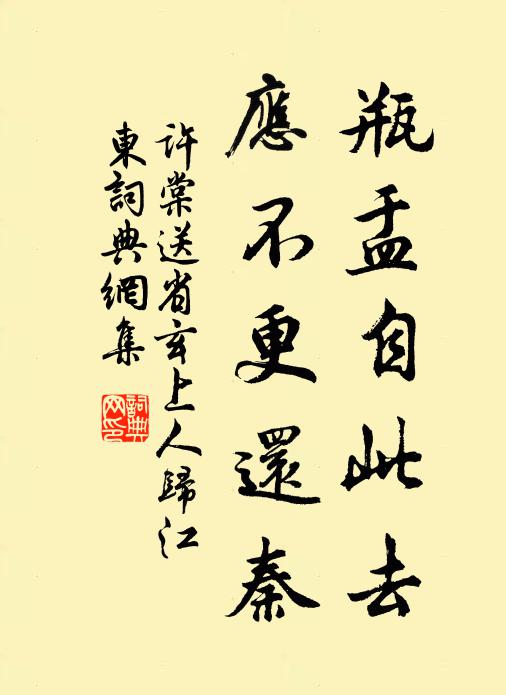 瓶盂自此去
應不更還秦
許棠送省玄上人歸江
東詞典網集
詞典
网印